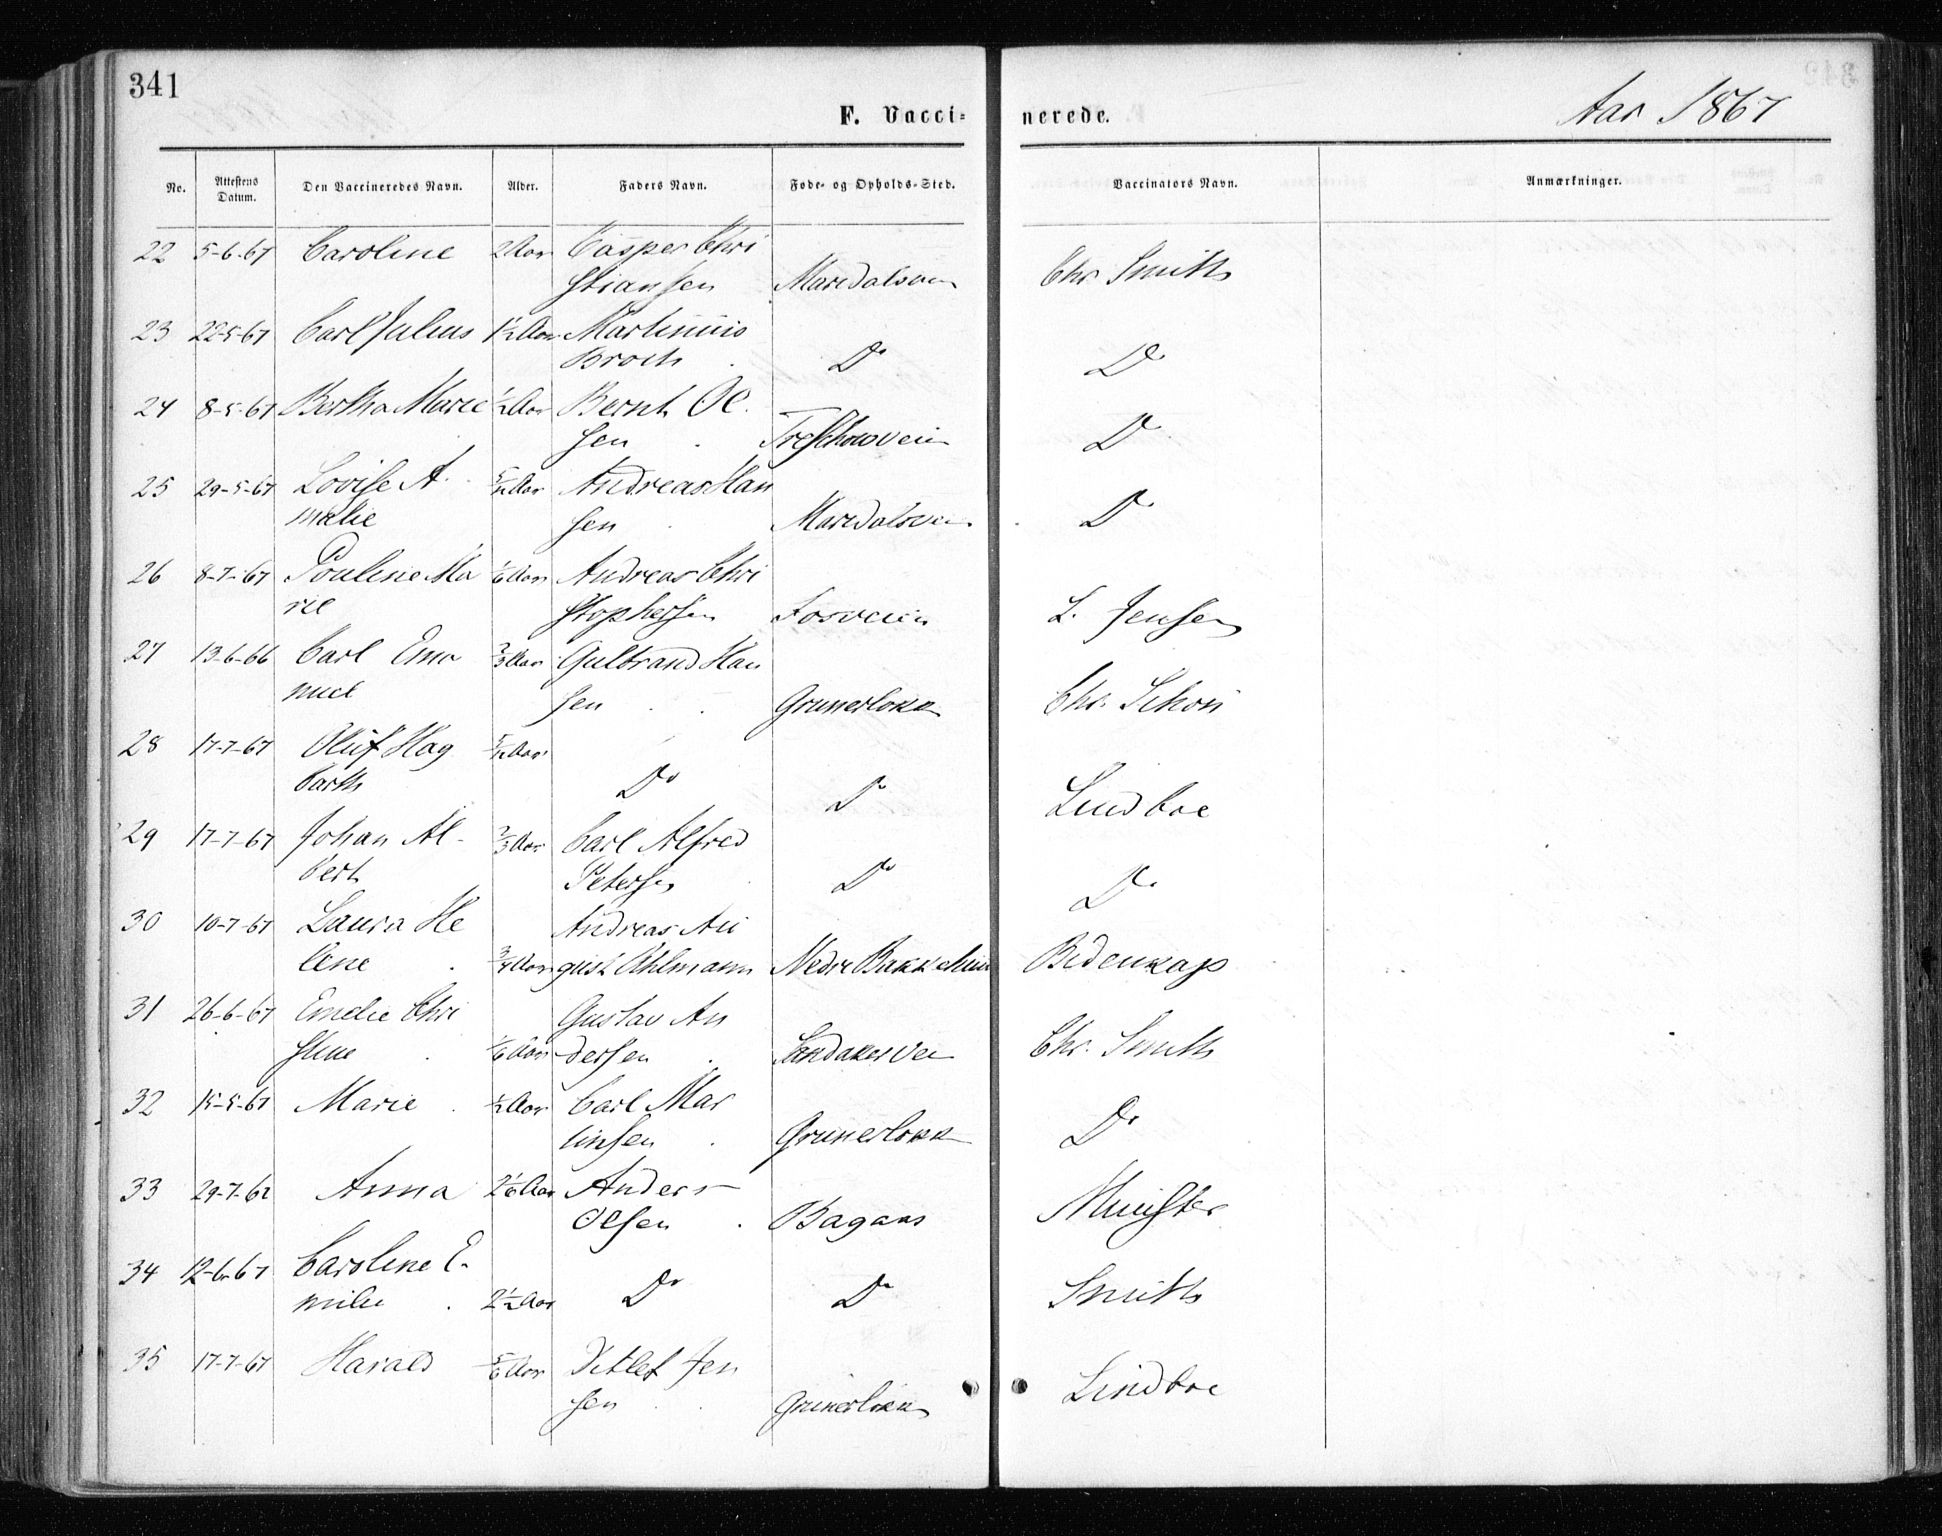 341
F. Vacci-
nerede.
Aar 1867
No.
Attestens Datum.
Den Vaccineredes Navn.
Alder.
Faders Navn.
Føde- og Opholds-Sted.
Vaccinators Navn.
Anmærkninger.
22 5-6-67 Caroline 2 Aar Casper Chri
stiansen Maridalsvein Chr. Smith
23 22-5-67 Carl Julius 1½ Aar Martinius
Broch . Do Do
24 8-5-67 Bertha Marie ½ Aar Bernt Ol.
sen . Treschowveien Do
25 29-5-67 Lovise A. 5/12 Aar Andreas Han
malie sen . Maridalsvei Do
26 8-7-67 Pouline Ma 1/6 Aar Andreas Chri
rie stophersen Fosveien L. Jensen
27 13-6-66 Carl Ema 2/3 Aar Gulbrand Han
nuel sen . . Grunerløkk Chr. Schou
28 17-7-67 Oluf Hag 5/12 Aar
barth Do Do Lindboe
29 17-7-67 Johan Al- 2/3 Aar Carl Alfred
bert Petersen Do Do
30 10-7-67 Laura He Andreas Au
lene . 3/4 Aar gust Ohlmann Nedre Bakkehun Bidenkap
31 26-6-67 Emelie Chri Gustav An
stine . 1/6 Aar dersen . Sandakervei Chr. Smith
32 15-5-67 Marie . ½ Aar Carl Mar
tinsen . Grunerløkk Do
33 29-7-62 Anna 2 1/6 Aar Anders
Olsen . Bagaas Münster
34 12-6-67 Caroline E.
milie . 2½ Aar Do Do Smith
35 17-7-67 Harald 5/6 Aar Ditlef Jen
sen . . Grunerløkk Lindboe